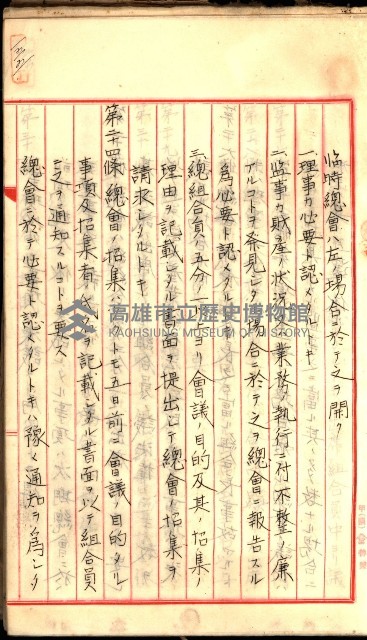 臨時總會ハ左ノ場合ニ於テ之ヲ開ク
一、理事カ必要ト認メタルトキ
二、監事カ財産ノ狀況又ハ業務ノ執行ニ付不整ノ廉
アルコトヲ発見シタル場合ニ於テ之ヲ總會ニ報告スル
為必要ト認メタルトキ
三、總組合員ノ五分ノ一以上ヨリ會議ノ目的及其ノ招集ノ
理由ヲ記載シタル書面ヲ提出シテ總會ノ招集ヲ
請求シタルトキ
第二十四條 總會ノ招集ハ少クトモ五日前ニ會議ノ目的タル
事項及招集者ノ氏名ヲ記載シタル書面ヲ以テ組合員
ニ之ヲ通知スルコトヲ要ス
總會ニ於テ必要ト認メタルトキハ豫メ通知ヲ為シタ
高雄市立歷史博物館
KAOHSIUNG MUSEUM OF HISTORY